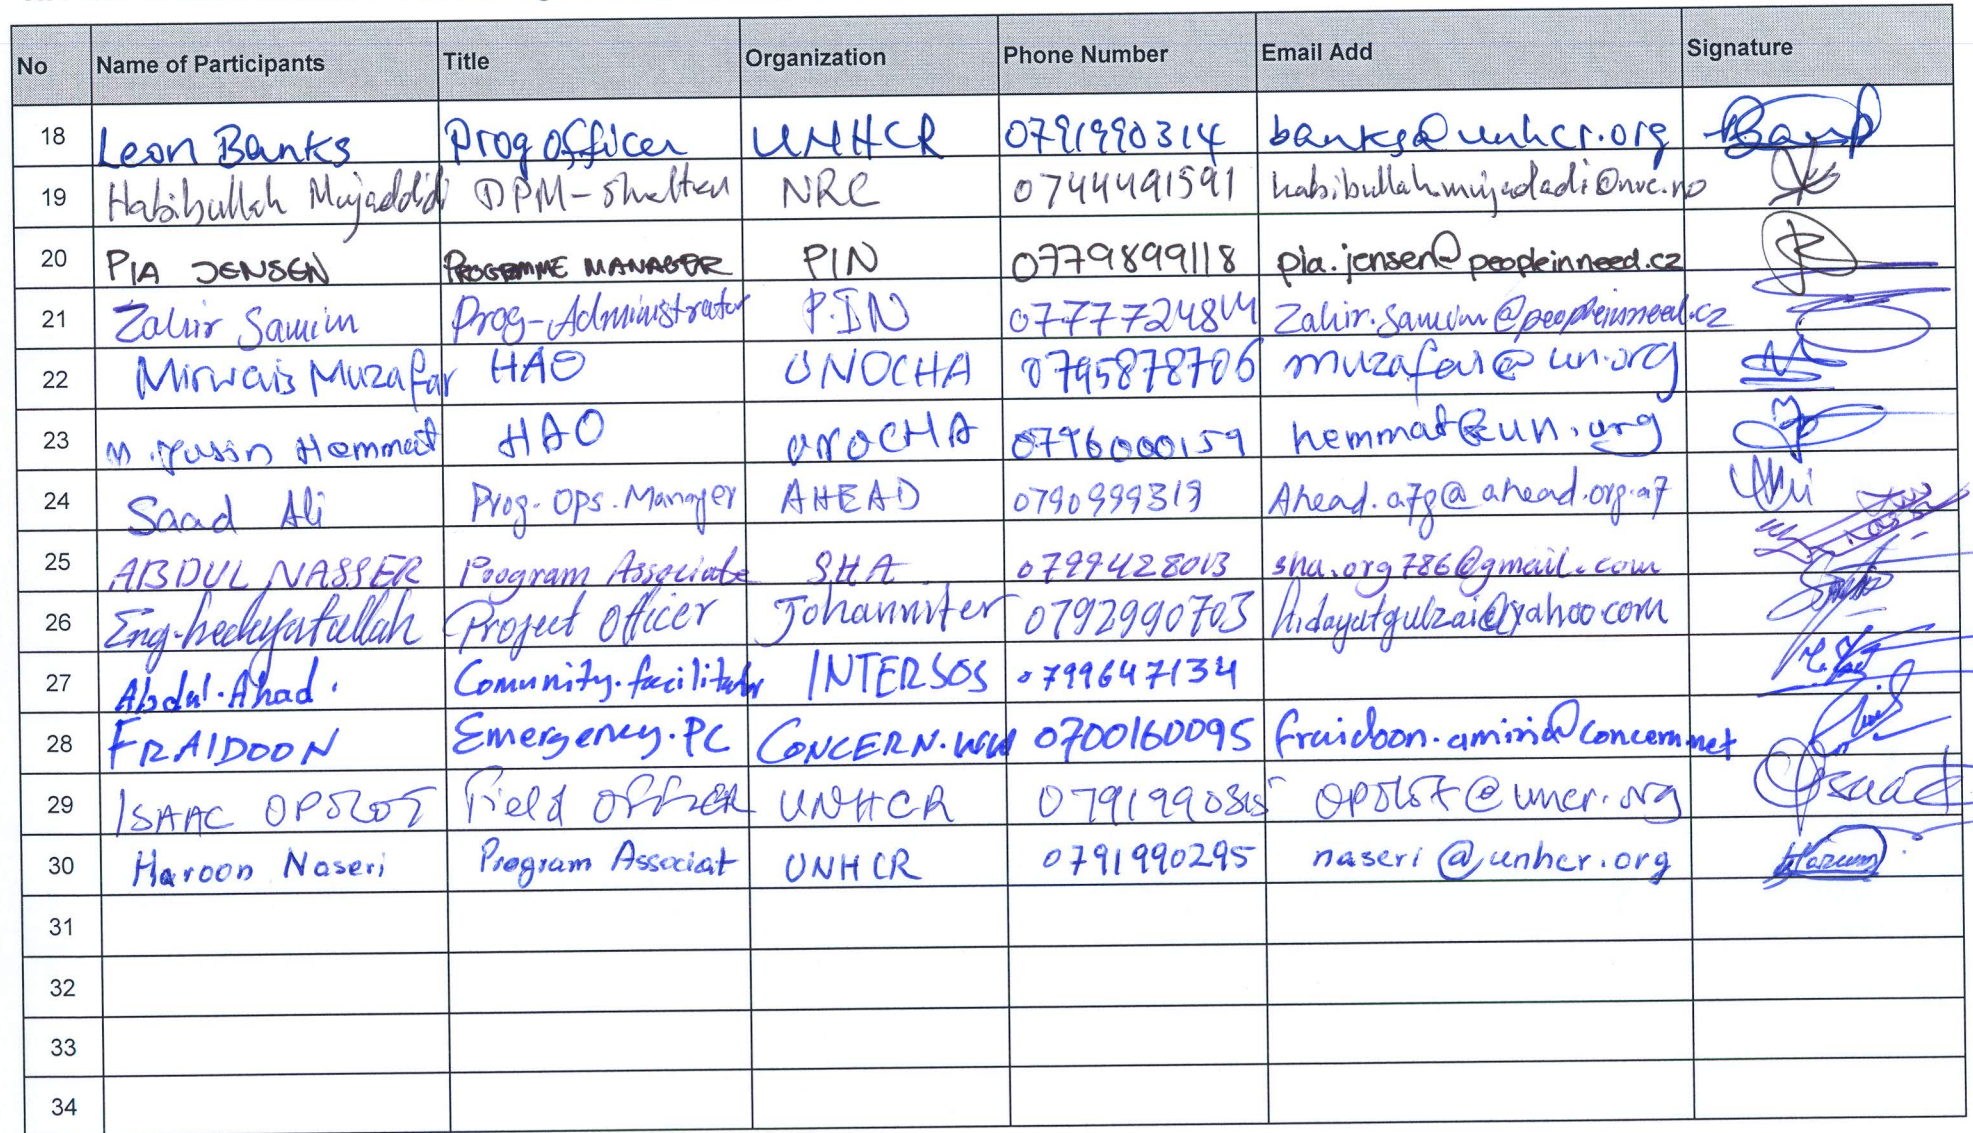 No Name of Participants Title Organization Phone Number Email Add Signature
18 Leon Banks Prog officer UNHCR 0791990314 banks@unhcr.org
19 Habibullah Mujaddidi DPM-Shelter NRC 0744491591 habibullah.mujadadi@nrc.no
20 PIA JENSEN PROGRAMME MANAGER PIN 0779899118 pia.jensen@peopleinneed.cz
21 Zahir Samim Prog-Administrator P.IN Zahir.Samim@peopleinneed.cz
22 Mirwais Muzafar HAO UNOCHA 0795878706 muzafar@un.org
23 M. Yasin Hemmat HAO UNOCHA 0796000159 hemmat@un.org
24 Saad Ali Prog. Ops. Manager AHEAD 0790999319 Ahead.afg@ahead.org.af
25 ABDUL NASSER Program Associate SHA 0799428013 sha.org786@gmail.com
26 Eng-hedayatullah Project Officer Johanniter 0792990703 hidayatgulzai@yahoo.com
27 Abdul.Ahad. Comunity.facilitator INTERSOS 0799647134
28 FRAIDOON Emergency.PC CONCERN.WW 0700160095 fraidoon.amiri@concern.net
29 ISAAC OPOLOT Field OFFICER UNHCR
30 Haroon Naseri Program Associat UNHCR 0791990295 naseri@unhcr.org
31
32
33
34